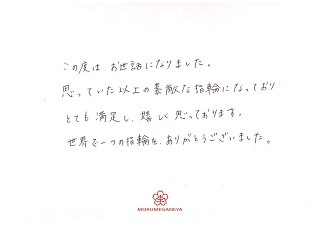 この度は、お世話になりました。
思っていた以上の素敵な指輪になっており
とても満足し、嬉しく思っております。
世界で一つの指輪を、ありがとうございました。
MOKUMEGANEYA